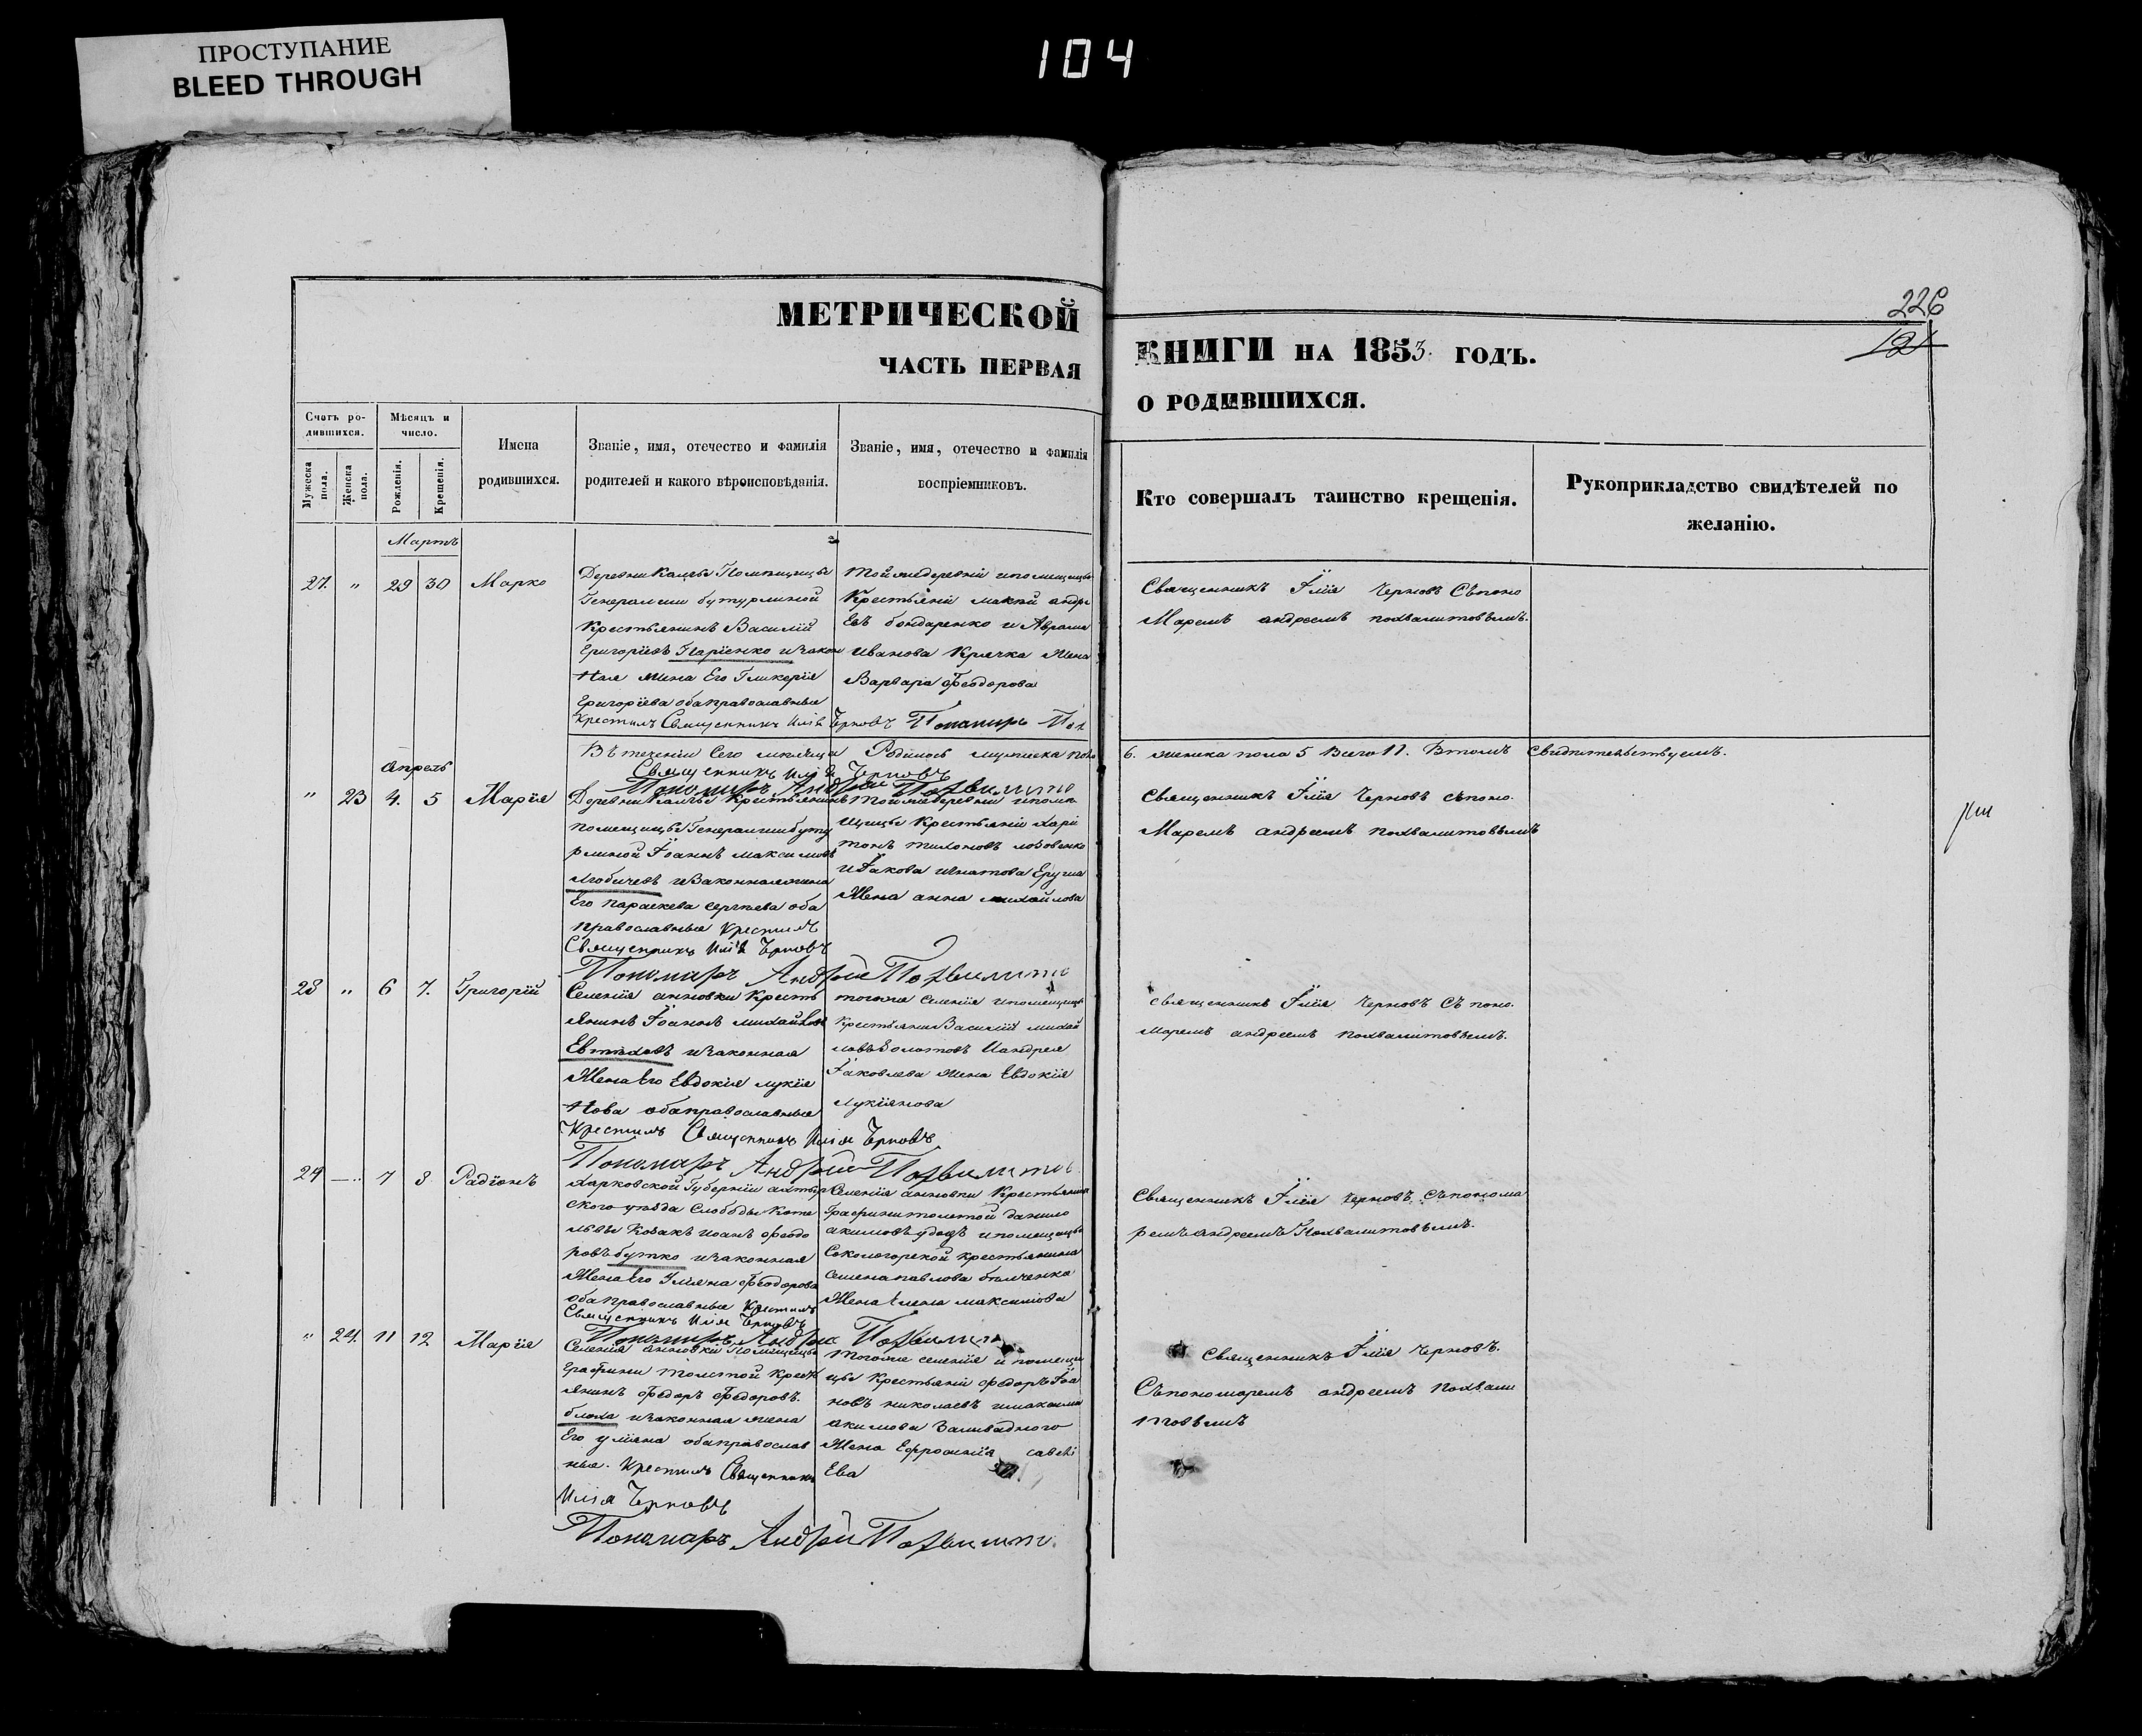 ПРОСТУПАНИЕ
BLEED THROUGH
104
226
121
МЕТРИЧЕСКОЙ
ЧАСТЬ ПЕРВАЯ
КНИГИ НА 1853 ГОДЪ.
О РОДИВШИХСЯ.
Счетъ ро-
дившихся.
Мужеска
пола.
Женска
пола.
Мѣсяцъ и
число.
Рожденія.
Крещенія.
Имена
родившихся.
Званіе, имя, отечество и фамилія
родителей и какого вѣроисповѣданія.
Званіе, имя, отечество и фамилія
воспріемниковъ.
Кто совершалъ таинство крещенія.
Рукоприкладство свидѣтелей по
желанію.
Мартъ
27. " 29 30 Марко
Деревни Помѣщицы
Генеральши бутурлиной
Крестьянинъ Василій
Григоріевъ и закон
ная жена Его Гликерія
Григоріева оба православные
Крестилъ Священникъ Илія Черновъ Пономаръ
той же деревни и помещицы
Крестьяне андре
евъ бондаренко и Аврама
иванова Крячка жена
Варвара Феодорова
Священникъ Илія Черновъ Съ поно
Маремъ андреемъ похвалитовымъ.
Въ теченіи Сего месяца Родилось мужеска пола
6. женска пола 5 Всего 11. Втомъ Свидѣтельствуемъ.
Священникъ Илія Черновъ
Пономаръ Андрей
Апрель
" 23 4. 5 Марія
Деревни Крестьянинъ
помещицы Генеральши буту
рлиной Іоаннъ максимовъ
и Законная жена
Его параскева сергѣева оба
православные Крестилъ
Священникъ Илія Черновъ
Пономаръ Андрей
той же деревни и поме
щицы Крестьяне хари
тонъ тихоновъ
и Іакова игнатова
Жена анна михайлова
Священникъ Илія Черновъ съ поно.
Маремъ андреемъ похвалитовымъ
28 " 6 7. Григорій
Селенія анновки Кресть
янинъ Іоаннъ михайловъ
и законная
Жена Его Евдокія лукія
нова оба православные
Крестилъ Священникъ Илія Черновъ
Пономаръ Андрей
тогоже селенія и помещицы
Крестьяне Василій михай
ловъ Золотовъ и андрея
Іаковлева жена Евдокія
Лукіянова
священникъ Илія Черновъ Съ поно.
Маремъ андреемъ похвалитовымъ.
29 — 7 8 Радіонъ
Харковской Губерніи ахтыр
ского уѣзда Слободы Коте
львы Козакъ Иоанъ феодо
ровъ бутко и законная
Жена Его Уліяна Феодорова
оба православные Крестилъ
Священникъ Илія Черновъ
Пономаръ Андрей
Селенія анновки Крестьянинъ
Графини толстой данило
акимовъ и помещицы
Крестьянина
семена павлова
Жена Елена максимова
Священникъ Илія Черновъ, Съ понома
ремъ андреемъ Похвалитовымъ.
" 24. 11 12 Марія
Селенія анновки Помѣщицы
Графини толстой Крест
янинъ Федоръ Федоровъ.
блоха и законная жена
Его уліяна оба православ
ные. Крестилъ Священникъ
Илія Черновъ
Пономаръ Андрей
тогоже селенія и помещи
цы Крестьяне Федоръ Іоа
новъ николаевъ
акимова
Жена Ефросинія савелі
Ева
Священникъ Илія Черновъ.
Съ пономаремъ андреемъ похвали
товымъ